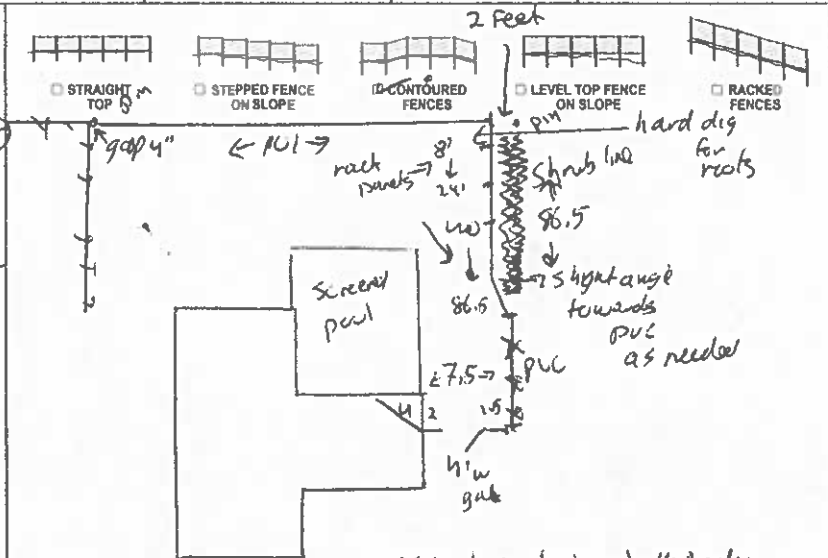 2 Feet
STRAIGHT TOP
STEPPED FENCE ON SLOPE
CONTOURED FENCES
LEVEL TOP FENCE ON SLOPE
RACKED FENCES
pin
hard dig
for
roots
gap 4"
rack
panels
8'
24'
40
shrub line
86.5
86.5
slight angle
towards
PVC
as needed
screened
pool
7.5
PVC
4
2
1.5
4'w
gate